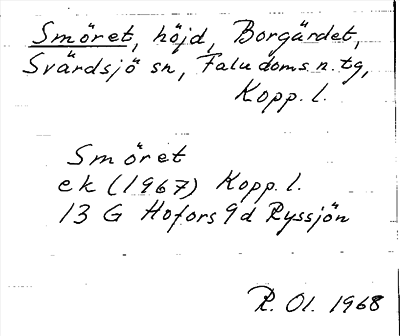 Smöret, höjd, Borgärdet,
Svärdsjö sn, Falu doms.n. tg,
Kopp. l.
Smöret
ek (1967) Kopp. l.
13 G Hofors 9d Ryssjön
R. Ol. 1968